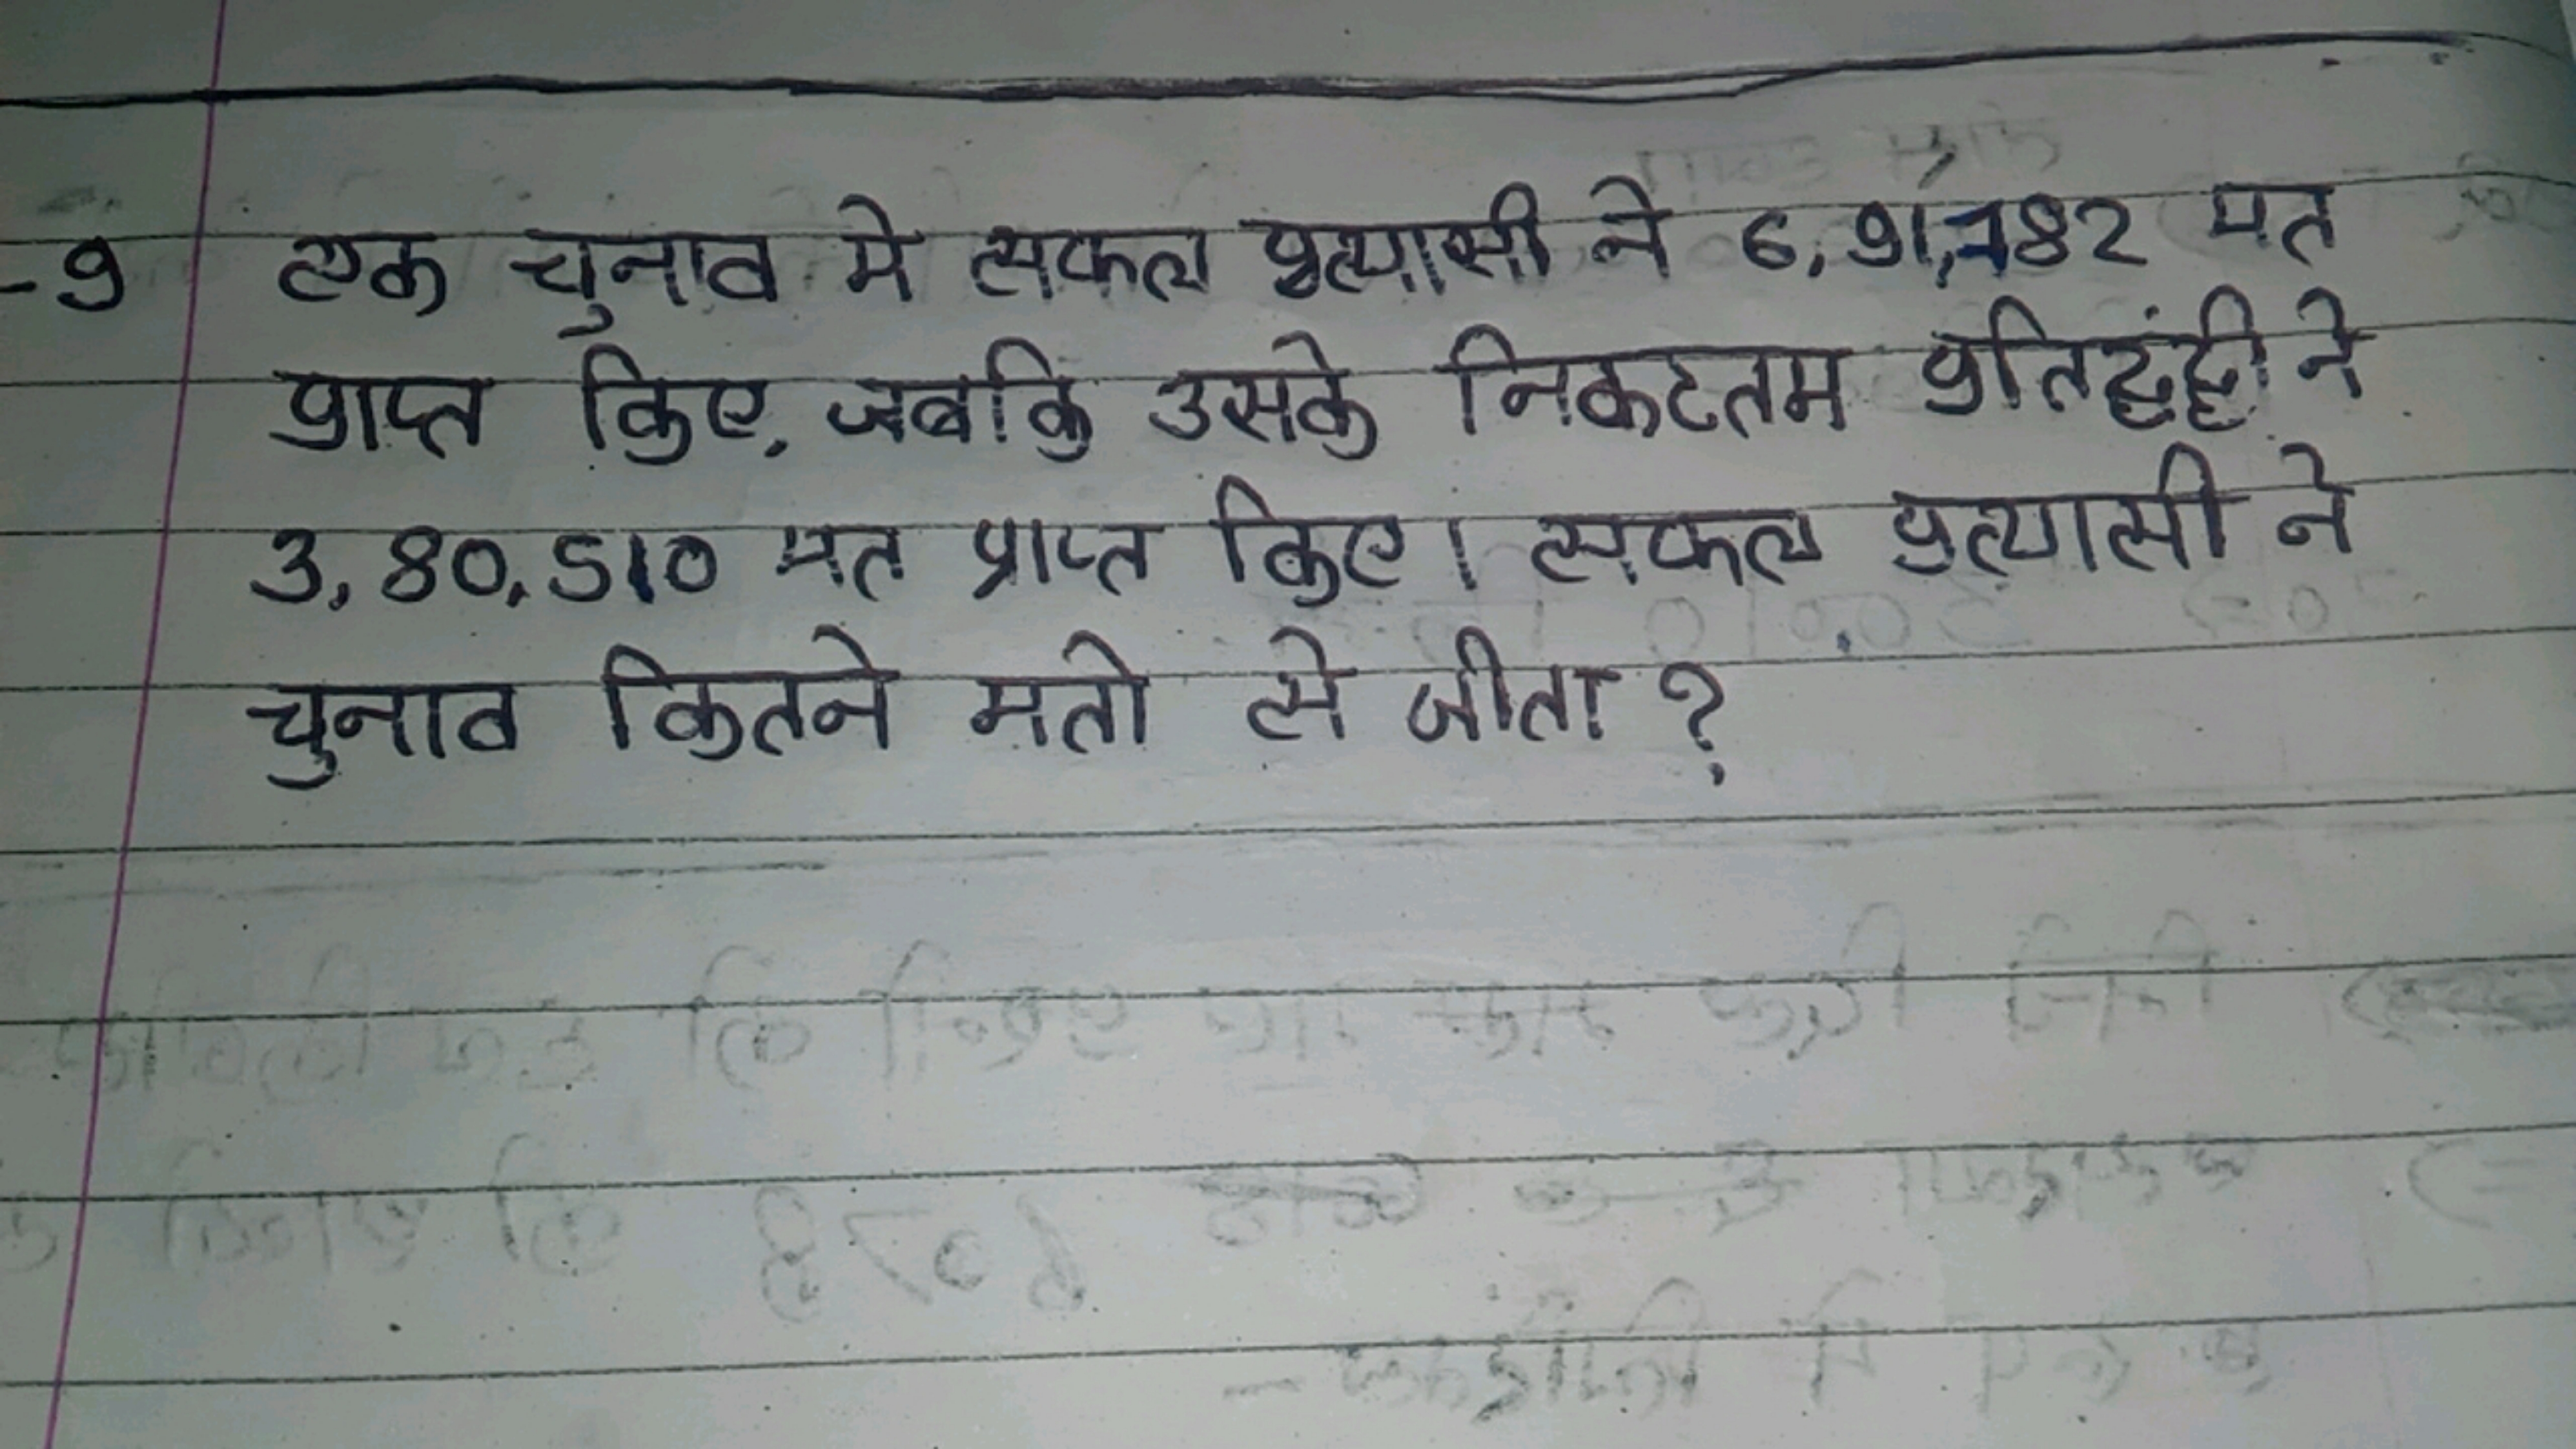 -9 एक चुनाव मे सफल प्रत्यासी ने 6,91,782 मत
प्राप्त किए, जबकि उसके निकटतम प्रतिद्वंद्वी ने
3,80,510 मत प्राप्त किए। सफल प्रत्यासी ने
चुनाव कितने मतो से जीता ?